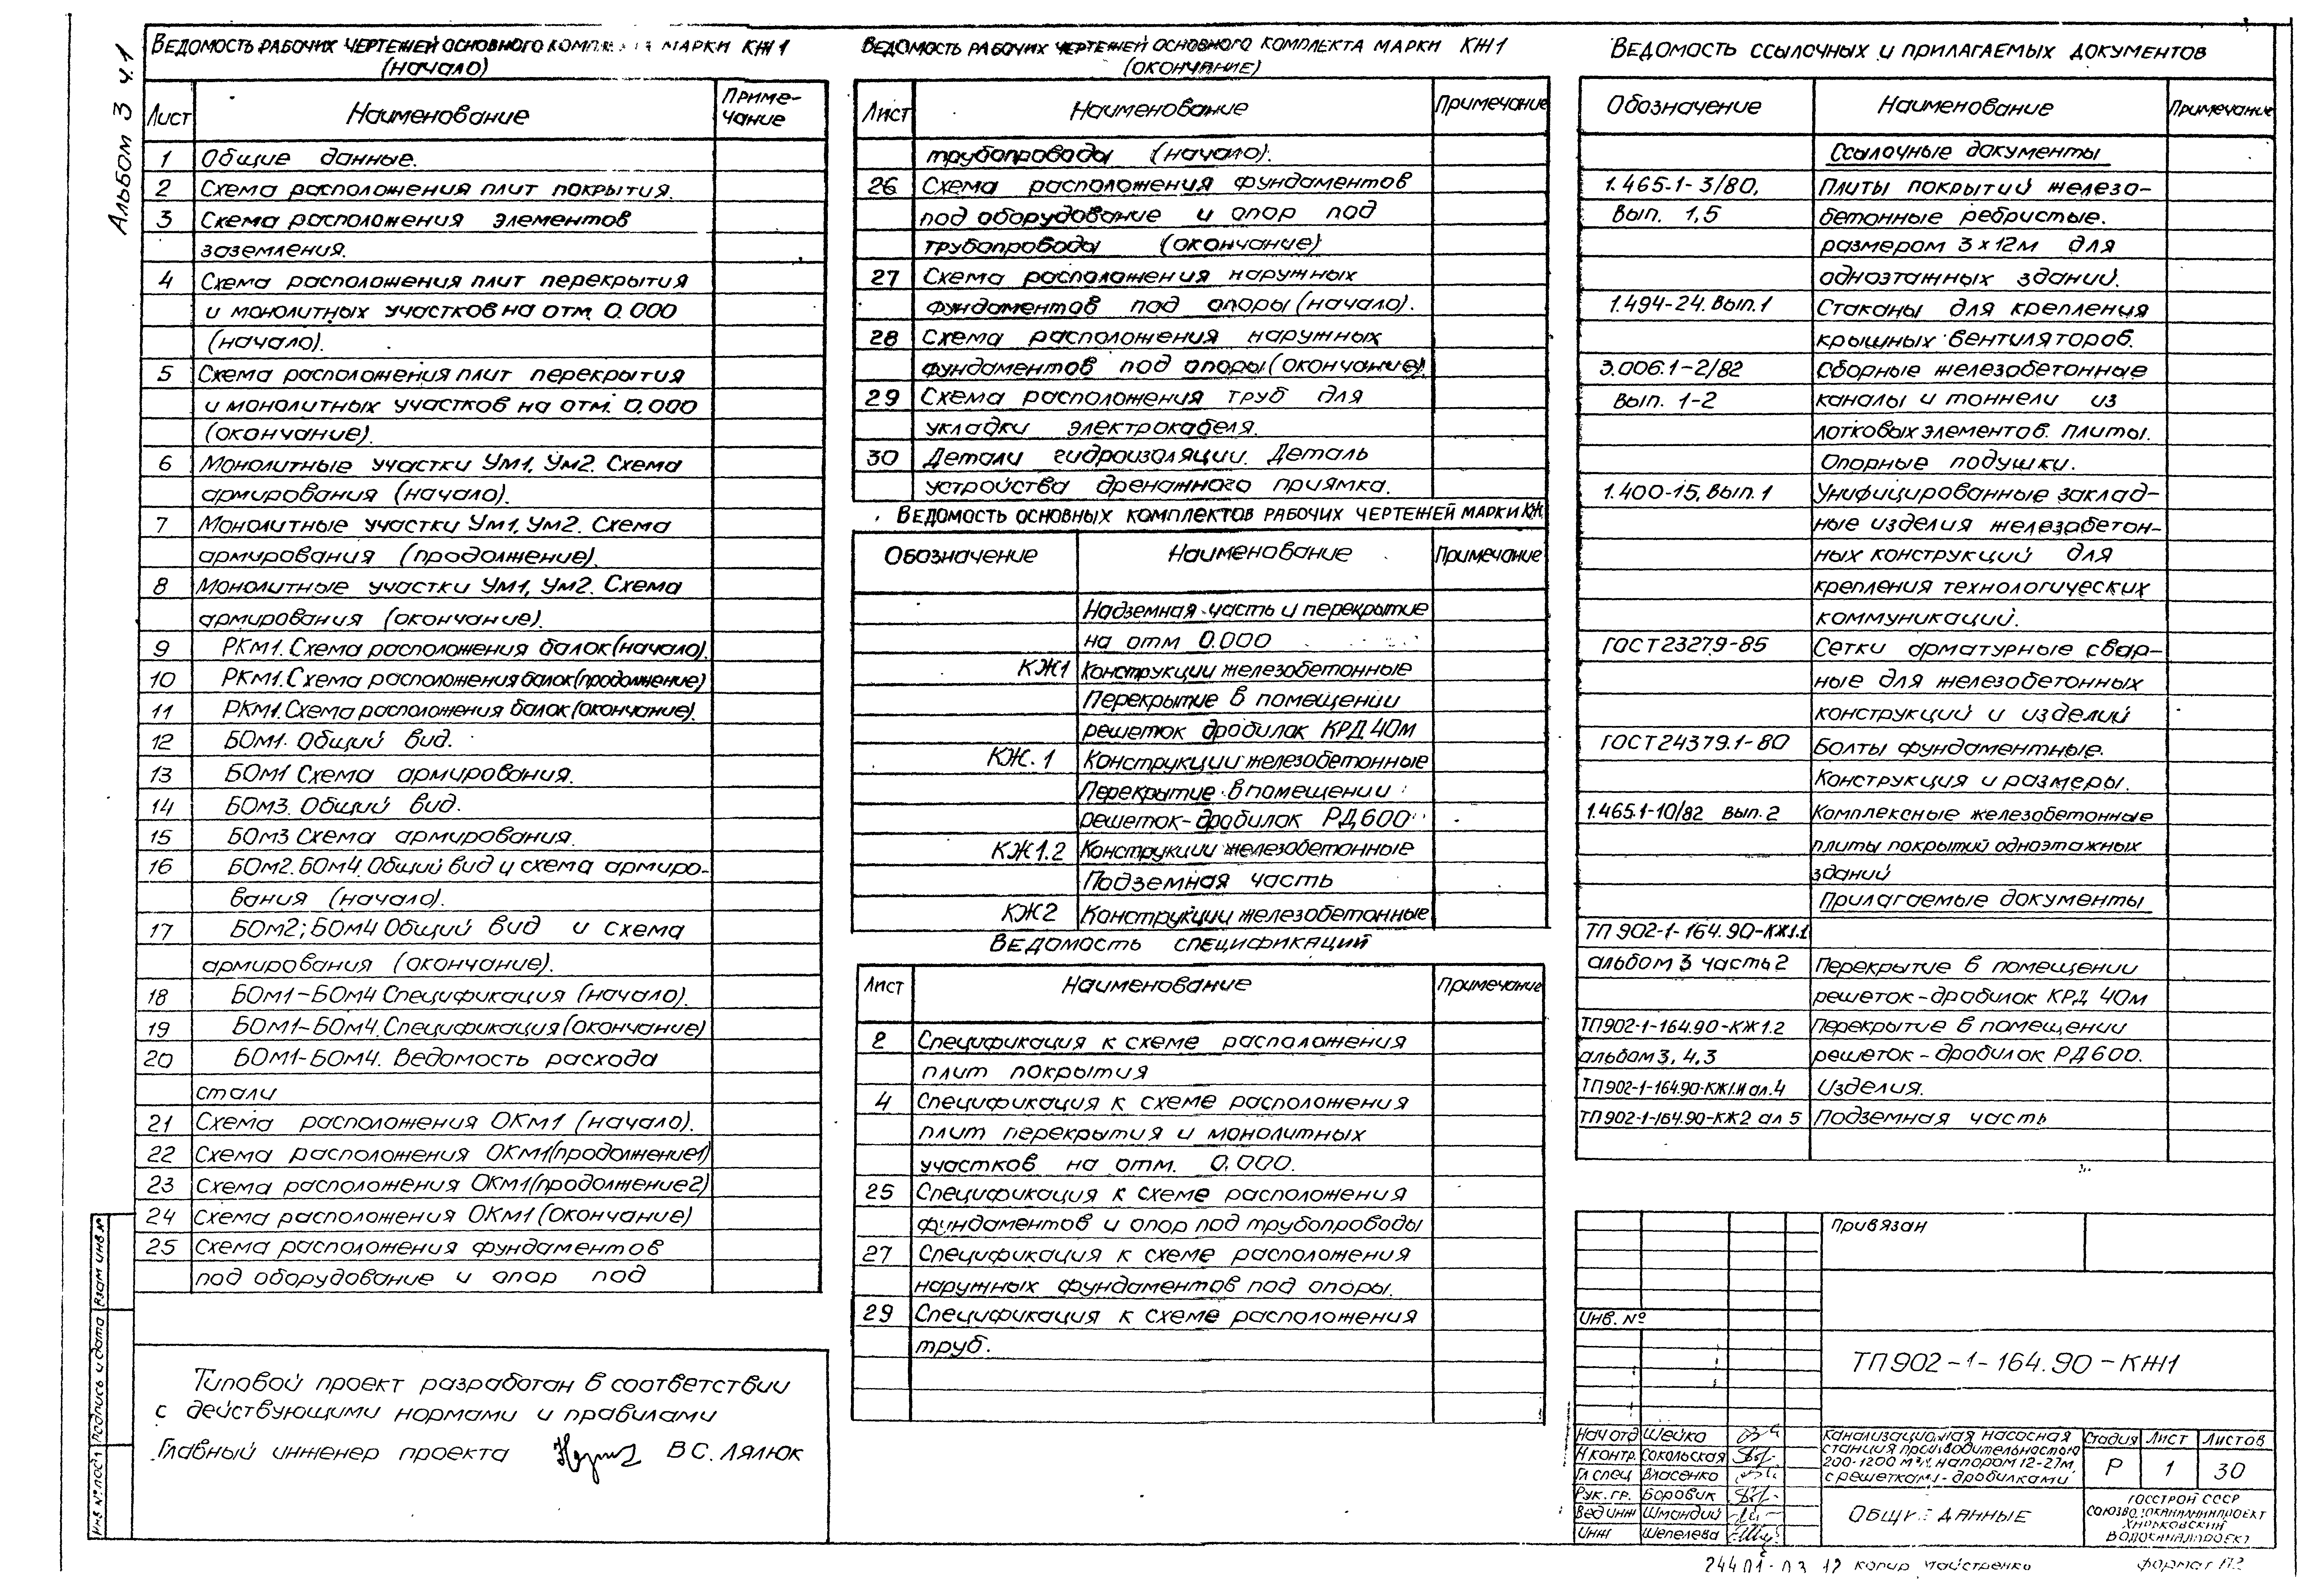 Альбом 3 ч.1
Ведомость рабочих чертежей основного марки КЖ1
(начало)
Лист Наименование Приме-
чание
1 Общие данные.
2 Схема расположения плит покрытия.
3 Схема расположения элементов
заземления.
4 Схема расположения плит перекрытия
и монолитных участков на отм. 0.000
(начало).
5 Схема расположения плит перекрытия
и монолитных участков на отм. 0.000
(окончание).
6 Монолитные участки Ум1, Ум2. Схема
армирования (начало).
7 Монолитные участки Ум1, Ум2. Схема
армирования (продолжение).
8 Монолитные участки Ум1, Ум2. Схема
армирования (окончание).
9 РКм1. Схема расположения балок (начало).
10 РКм1. Схема расположения балок (продолжение)
11 РКм1. Схема расположения балок (окончание).
12 БОм1. Общий вид.
13 БОм1 Схема армирования.
14 БОм3. Общий вид.
15 БОм3 Схема армирования.
16 БОм2. БОм4. Общий вид и схема армиро-
вания (начало).
17 БОм2; БОм4 Общий вид и схема
армирования (окончание).
18 БОм1-БОм4 Спецификация (начало).
19 БОм1-БОм4. Спецификация (окончание)
20 БОм1-БОм4. Ведомость расхода
стали
21 Схема расположения ОКм1 (начало).
22 Схема расположения ОКм1 (продолжение1)
23 Схема расположения ОКм1 (продолжение2)
24 Схема расположения ОКм1 (окончание)
25 Схема расположения фундаментов
под оборудование и опор под
Типовой проект разработан в соответствии
с действующими нормами и правилами
Главный инженер проекта В С. Лялюк
Взам инв.№
Подпись и дата
Инв № подл
Ведомость рабочих чертежей основного комплекта марки КЖ1
(окончание)
Лист Наименование Примечание
трубопроводы (начало).
26 Схема расположения фундаментов
под оборудование и опор под
трубопроводы (окончание)
27 Схема расположения наружных
фундаментов под опоры (начало).
28 Схема расположения наружных
фундаментов под опоры (окончание).
29 Схема расположения труб для
укладки электрокабеля.
30 Детали гидроизоляции. Деталь
устройства дренажного приямка.
Ведомость основных комплектов рабочих чертежей марки КЖ
Обозначение Наименование Примечание
Надземная часть и перекрытие
на отм 0.000
КЖ1 Конструкции железобетонные
Перекрытие в помещении
решеток дробилок КРД 40м
КЖ.1 Конструкции железобетонные
Перекрытие в помещении
решеток-дробилок РД600
КЖ1.2 Конструкции железобетонные
Подземная часть
КЖ2 Конструкции железобетонные
Ведомость спецификаций
Лист Наименование Примечание
2 Спецификация к схеме расположения
плит покрытия
4 Спецификация к схеме расположения
плит перекрытия и монолитных
участков на отм. 0.000.
25 Спецификация к схеме расположения
фундаментов и опор под трубопроводы
27 Спецификация к схеме расположения
наружных фундаментов под опоры.
29 Спецификация к схеме расположения
труб.
Ведомость ссылочных и прилагаемых документов
Обозначение Наименование Примечание
Ссылочные документы
1.465.1-3/80, Плиты покрытий железо-
Вып. 1,5 бетонные ребристые.
размером 3х12м для
одноэтажных зданий.
1.494-24. Вып.1 Стаканы для крепления
крышных вентиляторов.
3.006.1-2/82 Сборные железобетонные
Вып. 1-2 каналы и тоннели из
лотковых элементов. Плиты.
Опорные подушки.
1.400-15, Вып.1 Унифицированные заклад-
ные изделия железобетон-
ных конструкций для
крепления технологических
коммуникаций.
ГОСТ 23279-85 Сетки арматурные свар-
ные для железобетонных
конструкций и изделий
ГОСТ 24379.1-80 Болты фундаментные.
Конструкция и размеры.
1.465.1-10/82 Вып.2 Комплексные железобетонные
плиты покрытий одноэтажных
зданий
Прилагаемые документы
ТП 902-1-164.90-КЖ1.1
альбом 3 часть 2 Перекрытие в помещении
решеток-дробилок КРД 40м
ТП902-1-164.90-КЖ1.2 Перекрытие в помещении
альбом 3, 4,3 решеток-дробилок РД600.
ТП902-1-164.90-КЖ1.И ал.4 Изделия.
ТП902-1-164.90-КЖ2 ал 5 Подземная часть
Привязан
Инв. №
ТП902-1-164.90-КЖ1
Нач отд Шейко
Н контр. Сокольская
Гл спец Власенко
Рук. гр. Боровик
Вед инж Шмандий
Инж Шепелева
Канализационная насосная
станция производительностью
200-1200 м³/ч, напором 12-27м,
с решетками-дробилками
Стадия Лист Листов
Р 1 30
Общие данные
Госстрой СССР
Союзводоканалниипроект
Харьковский
Водоканалпроект
24401-03 12 копир Майстренко формат А2